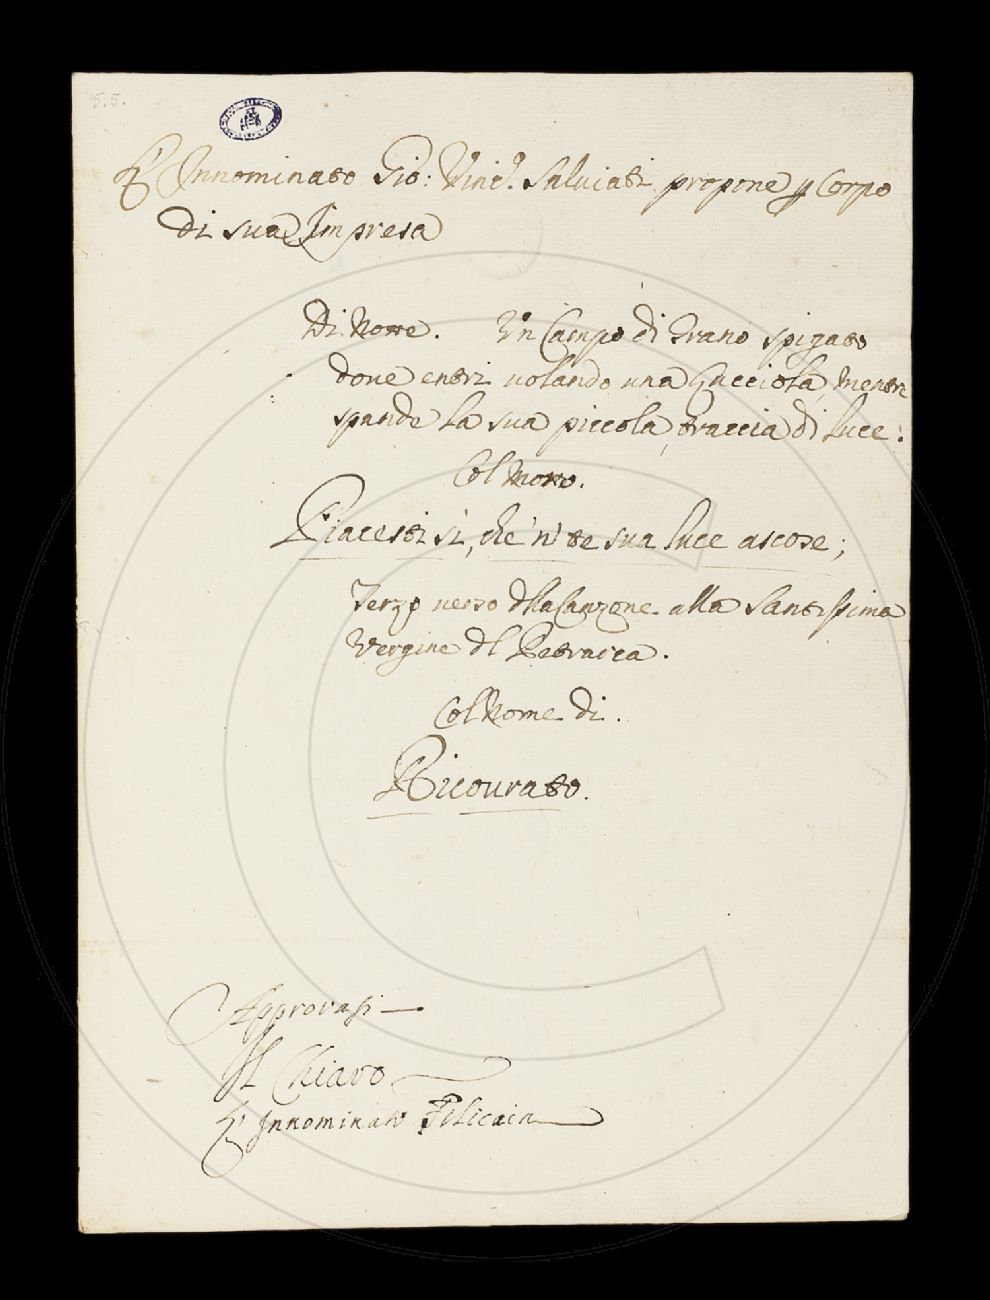 5.5.
L'Innominato Gio: Vinc.o Salviati propone p Corpo
di sua Impresa
Di Notte. Un Campo di Grano spigato
doue entri uolando una Lucciola, mentre
spande la sua piccola traccia di luce:
Col Motto.
Piacesti sì, che 'n te sua luce ascose;
Terzo uerso dlla Canzone alla Santissima
Vergine dl Petrarca.
Col Nome di.
Ricourato.
Approvasi
Il Chiaro
L'Innominato Filicaia